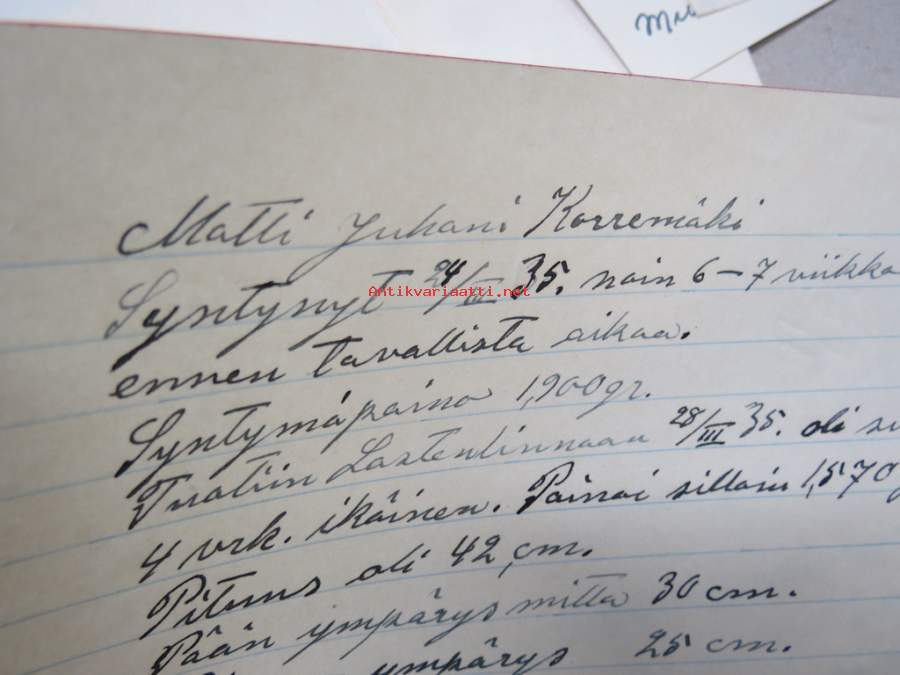 Matti Juhani Korremäki
Syntynyt 24/III 35. noin 6-7 viikko
ennen tavallista aikaa.
Syntymäpaino 1,900 gr.
Tuotiin Lastenlinnaan 28/III 35. oli
4 vrk. ikäinen. Painoi silloin 1,570
Pituus oli 42 cm.
Pään ympärys mitta 30 cm.
ympärys 25 cm.
Antikvariaatti.net